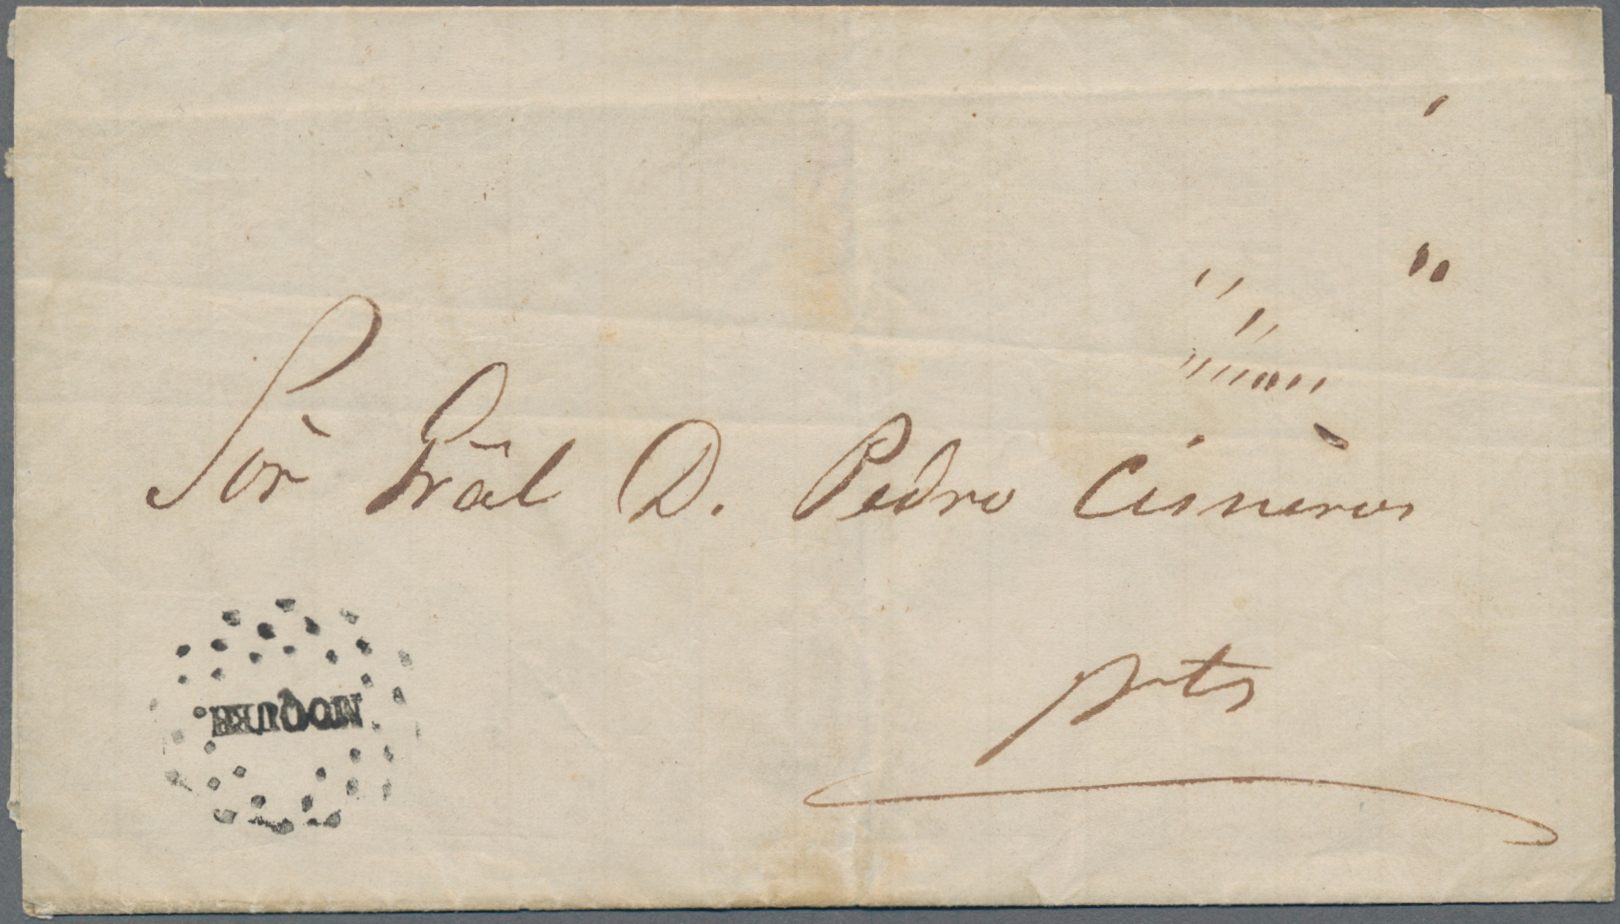 Sor Gral D. Pedro Cisneros
pte